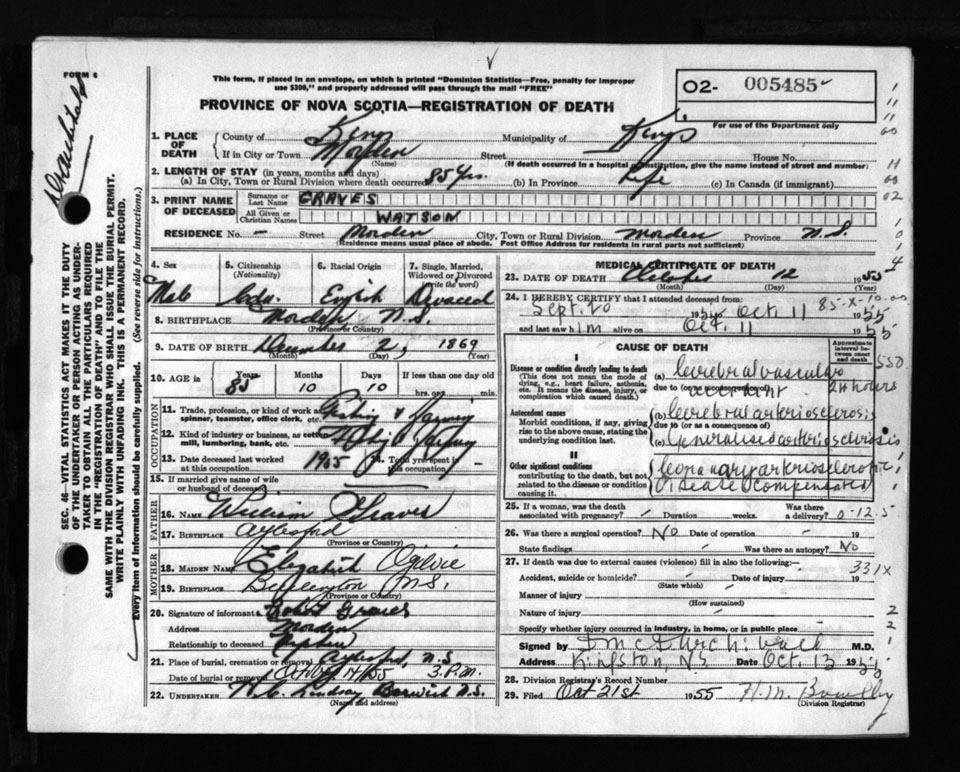 FORM 6
This form, if placed in an envelope, on which is printed "Dominion Statistics—Free, penalty for improper
use $300," and properly addressed will pass through the mail "FREE"
PROVINCE OF NOVA SCOTIA—REGISTRATION OF DEATH
O2- 005485
For use of the Department only
1. PLACE OF DEATH
County of Kings Municipality of Kings
If in City or Town Morden Street House No.
(Name) (If death occurred in a hospital or institution, give the name instead of street and number)
2. LENGTH OF STAY (in years, months and days)
(a) In City, Town or Rural Division where death occurred 85 Yrs. (b) In Province Life (c) In Canada (if immigrant)
3. PRINT NAME OF DECEASED
Surname or Last Name GRAVES
All Given or Christian Names WATSON
RESIDENCE No. – Street Morden City, Town or Rural Division Morden Province N.S.
(Residence means usual place of abode. Post Office Address for residents in rural parts not sufficient)
4. Sex Male
5. Citizenship (Nationality) Cdn.
6. Racial Origin English
7. Single, Married, Widowed or Divorced (write the word) Divorced
8. BIRTHPLACE Morden N.S.
(Province or Country)
9. DATE OF BIRTH December 2, 1869
(Month) (Day) (Year)
10. AGE in Years 85 Months 10 Days 10 If less than one day old
hrs. or min.
OCCUPATION
11. Trade, profession, or kind of work as spinner, teamster, office clerk, etc. Fishing & Farming
12. Kind of industry or business, as cotton mill, lumbering, bank, etc. Fishing & Farming
13. Date deceased last worked at this occupation 1955 14. Total yrs. spent in this occupation
15. If married give name of wife or husband of deceased
FATHER
16. NAME William Graves
17. BIRTHPLACE Aylesford
(Province or Country)
MOTHER
18. MAIDEN NAME Elizabeth Ogilvie
19. BIRTHPLACE N.S.
(Province or Country)
20. Signature of informant Graves
Address Morden
Relationship to deceased Nephew
21. Place of burial, cremation or removal Aylesford, N.S.
Date of burial or removal October 14/55 3 P.M.
22. UNDERTAKER Lindsay Berwick N.S.
(Name and address)
MEDICAL CERTIFICATE OF DEATH
23. DATE OF DEATH October 12 1955
(Month) (Day)
24. I HEREBY CERTIFY that I attended deceased from 85-X-10.00
Sept. 20 1955 to Oct 11 1955
and last saw him alive on Oct. 11 1955
CAUSE OF DEATH
Approximate interval between onset and death
I
Disease or condition directly leading to death
(This does not mean the mode of dying, e.g., heart failure, asthenia, etc. It means the disease, injury, or complication which caused death.)
(a) Cerebral vascular accident 24 hours
due to (or as a consequence of)
Antecedent causes
Morbid conditions, if any, giving rise to the above cause, stating the underlying condition last.
(b) Cerebral arteriosclerosis
due to (or as a consequence of)
(c) Generalised arteriosclerosis
II
Other significant conditions
contributing to the death, but not related to the disease or condition causing it.
Coronary arteriosclerotic disease compensated
25. If a woman, was the death associated with pregnancy? Duration weeks. Was there a delivery? 0-12.5
26. Was there a surgical operation? No Date of operation 19
State findings Was there an autopsy? No
27. If death was due to external causes (violence) fill in also the following: 331X
Accident, suicide or homicide? Date of injury 19
(State which)
Manner of injury
(How sustained)
Nature of injury
Specify whether injury occurred in industry, in home, or in public place
Signed by M.D.
Address Kingston, NS Date Oct. 13 1955
28. Division Registrar's Record Number
29. Filed Oct 21st 1955 H.M.
(Division Registrar)
SEC. 46—VITAL STATISTICS ACT MAKES IT THE DUTY
OF THE UNDERTAKER OR PERSON ACTING AS UNDER-
TAKER TO OBTAIN ALL THE PARTICULARS REQUIRED
IN THE "REGISTRATION OF DEATH" AND TO FILE THE
SAME WITH THE DIVISION REGISTRAR WHO SHALL ISSUE THE BURIAL PERMIT.
WRITE PLAINLY WITH UNFADING INK. THIS IS A PERMANENT RECORD.
Every item of information should be carefully supplied. (See reverse side for instructions.)